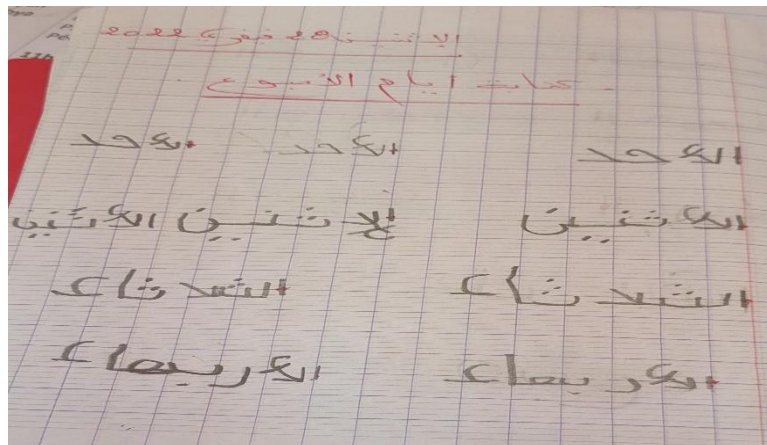 الاثنين 28 فيفري 2022
كتابة أيام الأسبوع
الاحد الاحد الاحد
الاثنين الاثنين الاثنين
الثلاثاء الثلاثاء
الاربعاء الاربعاء